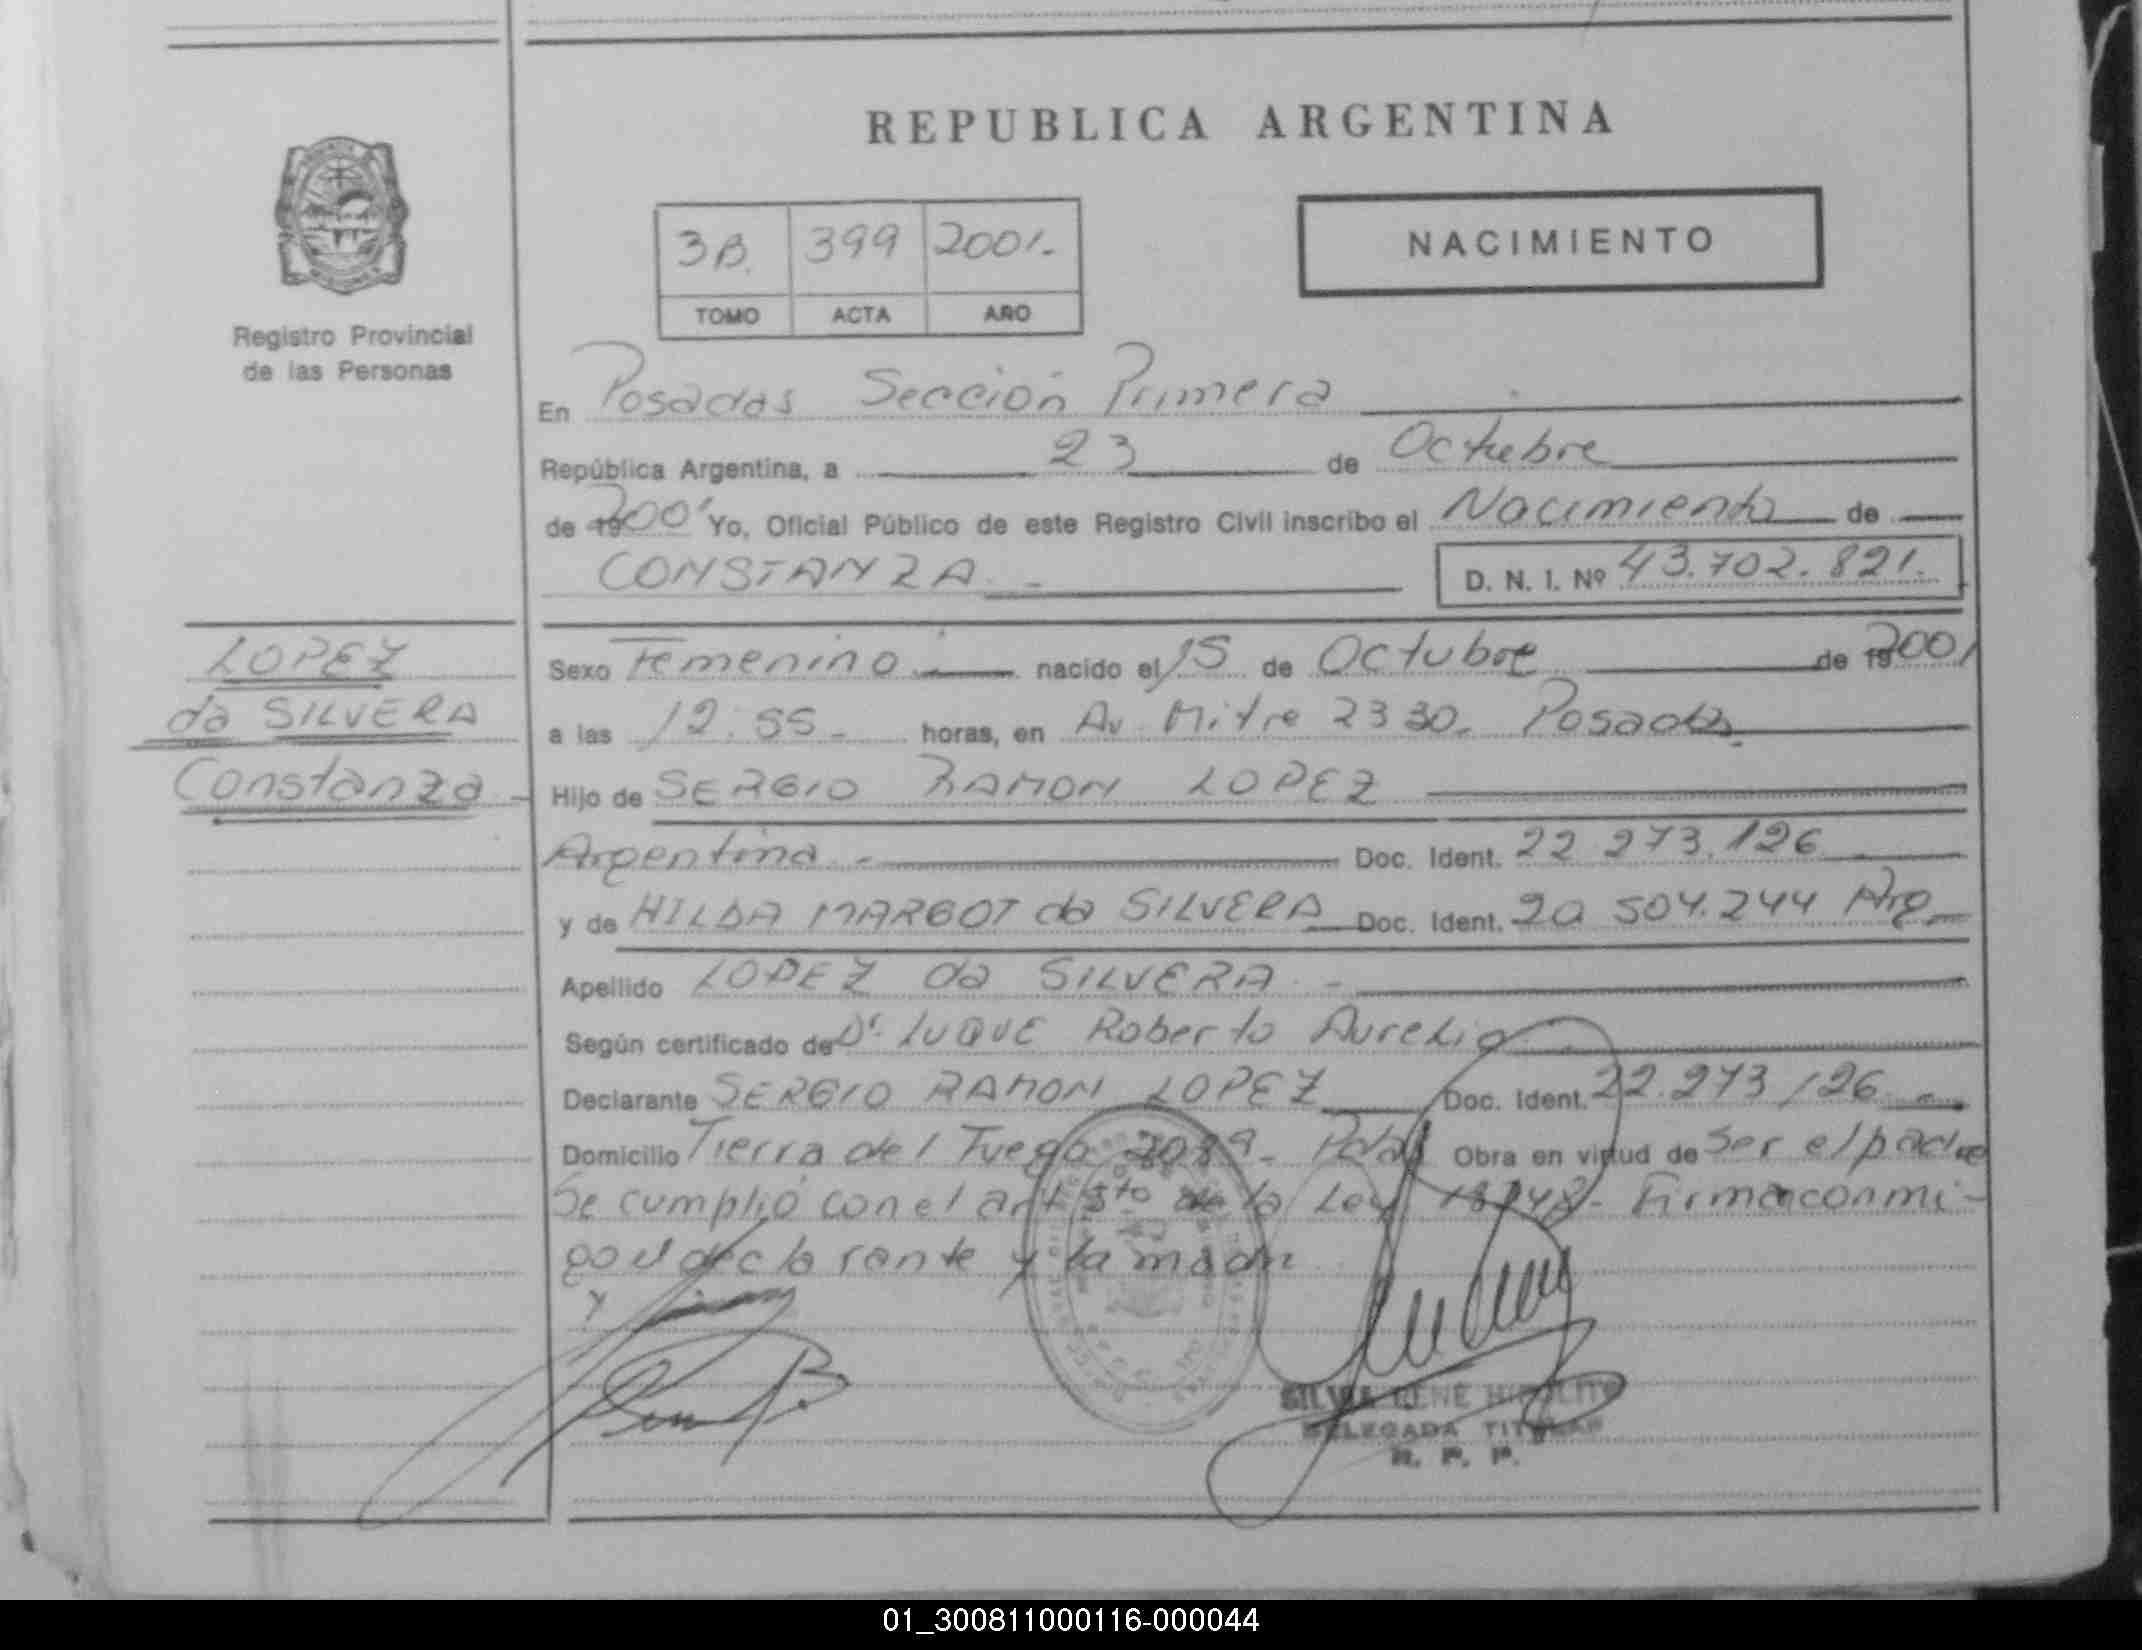 REPUBLICA ARGENTINA
NACIMIENTO
3B. 399 2001.-
TOMO ACTA AÑO
Registro Provincial
de las Personas
En Posadas Sección Primera
República Argentina, a 23 de Octubre
de 19 2001 Yo, Oficial Público de este Registro Civil inscribo el Nacimiento de
CONSTANZA.- D. N. I. Nº 43.702.821.
LOPEZ
da SILVERA
Constanza
Sexo Femenino.- nacido el 15 de Octubre de 19 2001
a las 12.55.- horas, en Av. Mitre 2330. Posadas.
Hijo de SERGIO RAMON LOPEZ
Argentina.- Doc. Ident. 22 273.126
y de HILDA MARGOT da SILVERA Doc. Ident. 20 504.244 Arg.
Apellido LOPEZ da SILVERA.-
Según certificado de Dr. LUQUE Roberto Aurelio
Declarante SERGIO RAMON LOPEZ Doc. Ident. 22.273126.-
Domicilio Tierra del Fuego Obra en virtud de ser el padre
Se cumplió con el art 5to de la Ley Firman conmi-
go el declarante y la madre
SILVIA IRENE HIPOLITO
DELEGADA TITULAR
R. P. P.
01_300811000116-000044